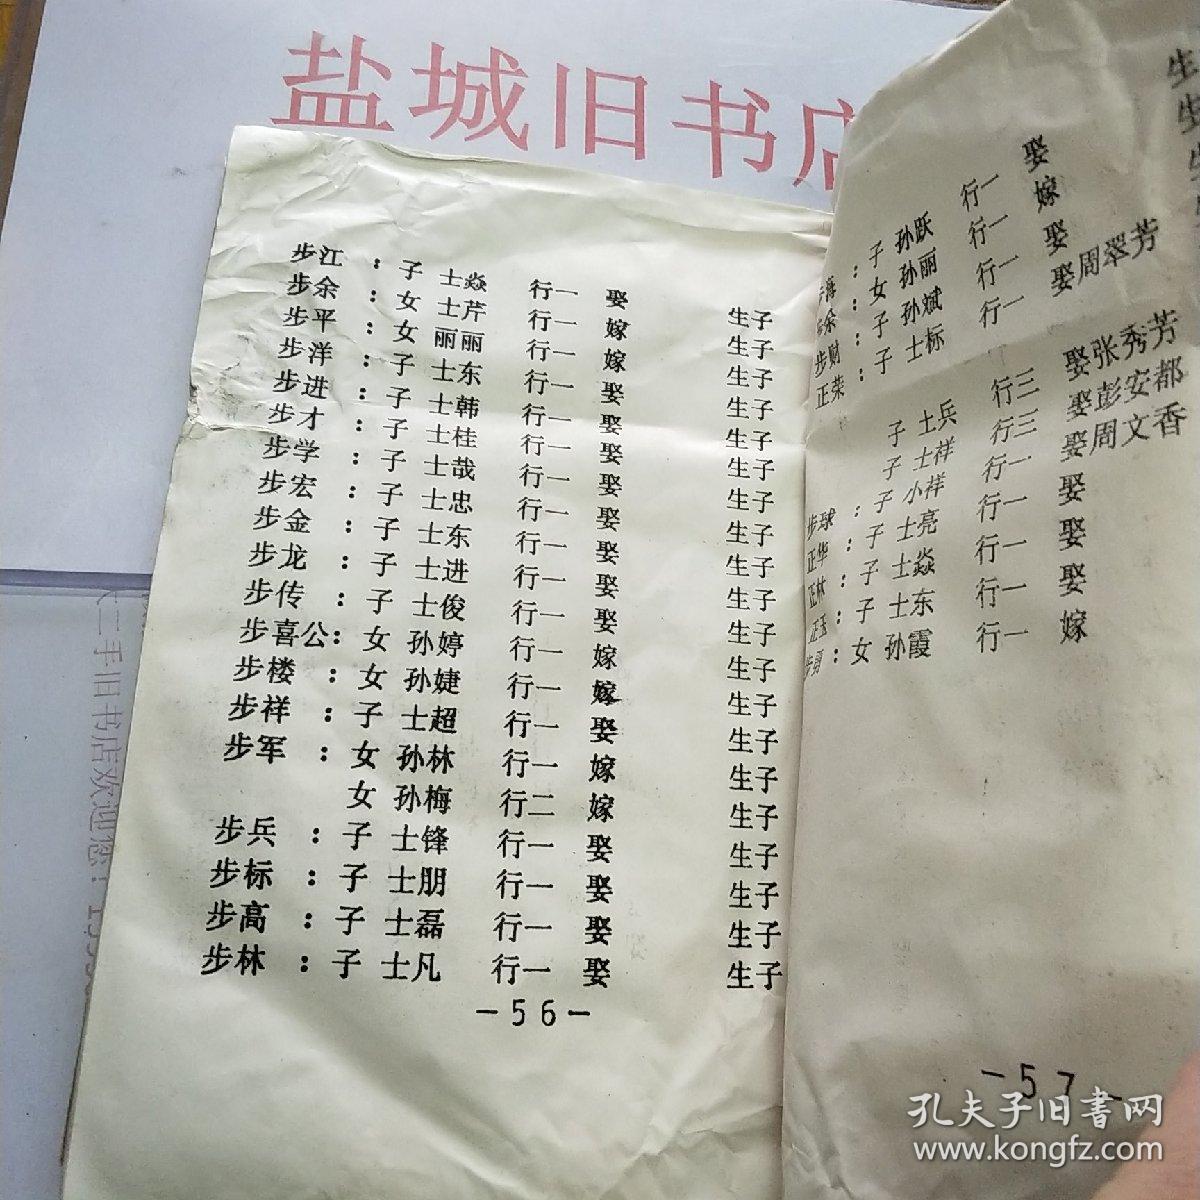 盐城旧书店
步江 ：子 士焱 行一 娶 生子
步余 ：女 士芹 行一 嫁 生子
步平 ：女 丽丽 行一 嫁 生子
步洋 ：子 士东 行一 娶 生子
步进 ：子 士韩 行一 娶 生子
步才 ：子 士桂 行一 娶 生子
步学 ：子 士哉 行一 娶 生子
步宏 ：子 士忠 行一 娶 生子
步金 ：子 士东 行一 娶 生子
步龙 ：子 士进 行一 娶 生子
步传 ：子 士俊 行一 娶 生子
步喜公：女 孙婷 行一 嫁 生子
步楼 ：女 孙婕 行一 嫁 生子
步祥 ：子 士超 行一 娶 生子
步军 ：女 孙林 行一 嫁 生子
女 孙梅 行二 嫁 生子
步兵 ：子 士锋 行一 娶 生子
步标 ：子 士朋 行一 娶 生子
步高 ：子 士磊 行一 娶 生子
步林 ：子 士凡 行一 娶 生子
－56－
：子 孙跃 行一 娶 生
余：女 孙丽 行一 嫁 生
步财：子 孙斌 行一 娶 生
正荣：子 士标 行一 娶周翠芳
子 士兵 行三 娶张秀芳
子 士祥 行三 娶彭安都
步球 ：子 小祥 行一 娶周文香
正华 ：子 士亮 行一 娶
正林 ：子 士焱 行一 娶
正玉 ：子 士东 行一 娶
步勇 ：女 孙霞 行一 嫁
－57－
二手旧书店欢迎您！
孔夫子旧书网
www.kongfz.com